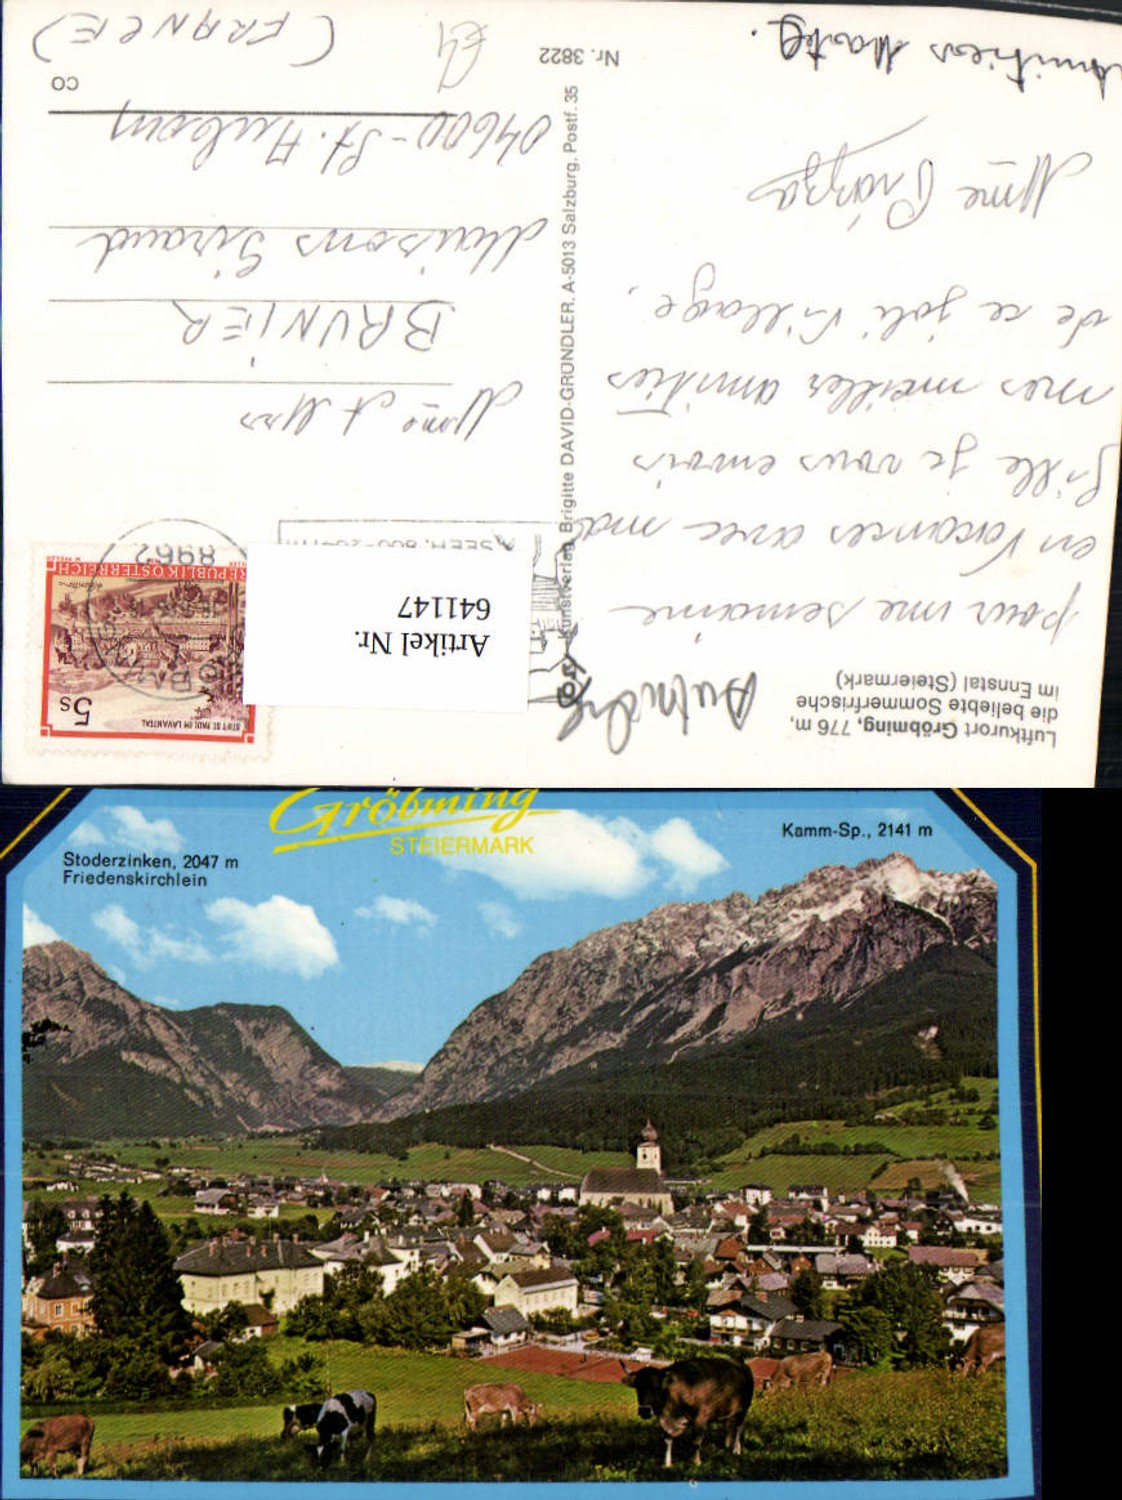 Luftkurort Gröbming, 776 m,
die beliebte Sommerfrische
im Ennstal (Steiermark)
pour une semaine
en Vacances avec ma
fille je vous envois
mes meilles amitiés
de ce joli village.
Mme
Nr. 3822
Kunstverlag Brigitte DAVID-GRÜNDLER, A-5013 Salzburg, Postf. 35
STIFT ST. PAUL IM LAVANTAL
5s
REPUBLIK ÖSTERREICH
8962
Artikel Nr.
641147
Mme & Mrs
BRUNIER
Maisons Giraud
04600 - St. Auban
CO
(FRANCE)
Gröbming
STEIERMARK
Stoderzinken, 2047 m
Friedenskirchlein
Kamm-Sp., 2141 m